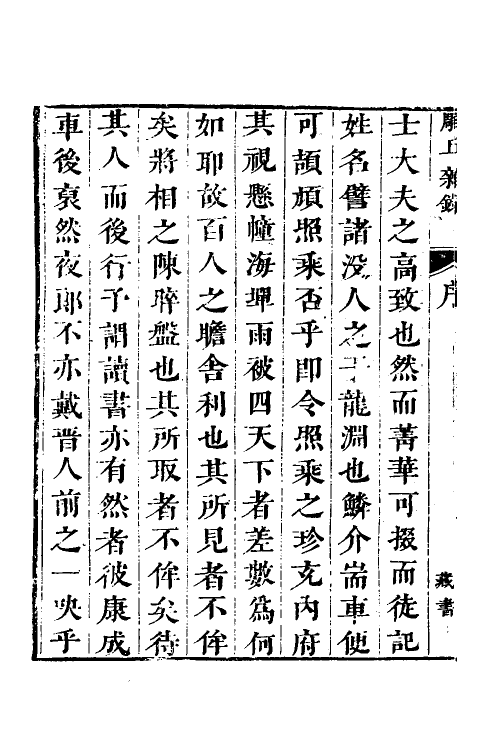 雜錄
序
藏書
士大夫之高致也然而菁華可掇而徒記
姓名譬諸没人之于龍淵也鱗介耑車便
可頡頏照乘否乎即令照乘之珍充內府
其視懸幢海墠雨被四天下者差數爲何
如耶故百人之瞻舍利也其所見者不侔
矣將相之陳晬盤也其所取者不侔矣待
其人而後行予謂讀書亦有然者彼康成
車後裒然夜郎不亦戴晋人前之一吷乎